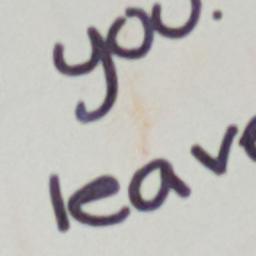 you.
leave